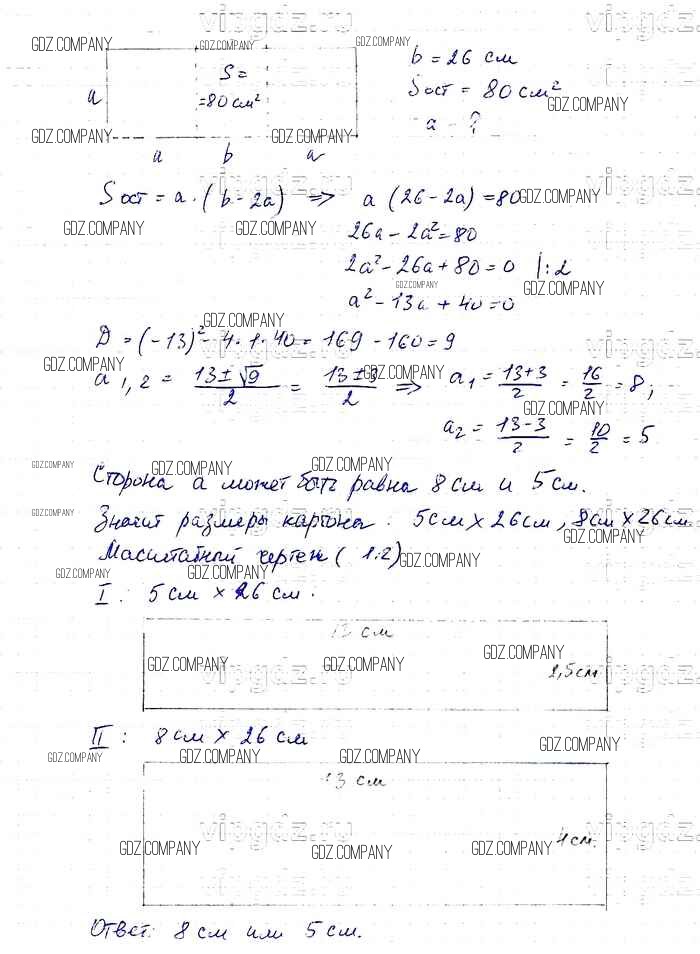 vipgdz.ru
GDZ.COMPANY GDZ.COMPANY GDZ.COMPANY
b = 26 см
S =
= 80 см²
Sост = 80 см²
GDZ.COMPANY
a a - ?
GDZ.COMPANY GDZ.COMPANY
a b a
vipgdz.ru
Sост = a · (b - 2a) ⇒ a (26 - 2a) = 80
GDZ.COMPANY
GDZ.COMPANY GDZ.COMPANY
26a - 2a² = 80
2a² - 26a + 80 = 0 |:2
GDZ.COMPANY GDZ.COMPANY
a² - 13a + 40 = 0
GDZ.COMPANY
D = (-13)² - 4·1·40 = 169 - 160 = 9
vipgdz.ru
GDZ.COMPANY GDZ.COMPANY
a1,2 = (13 ± √9)/2 = (13 ± 3)/2 ⇒ a1 = (13+3)/2 = 16/2 = 8;
GDZ.COMPANY
a2 = (13-3)/2 = 10/2 = 5
GDZ.COMPANY GDZ.COMPANY GDZ.COMPANY
Сторона a может быть равна 8 см и 5 см.
GDZ.COMPANY
Значит размеры картона: 5 см × 26 см, 8 см × 26 см.
GDZ.COMPANY
Масштабный чертеж (1:2)
GDZ.COMPANY
GDZ.COMPANY GDZ.COMPANY
I: 5 см × 26 см.
13 см
GDZ.COMPANY
GDZ.COMPANY GDZ.COMPANY
2,5 см
vipgdz.ru
II: 8 см × 26 см
GDZ.COMPANY
GDZ.COMPANY GDZ.COMPANY GDZ.COMPANY
13 см
vipgdz.ru
4 см.
GDZ.COMPANY GDZ.COMPANY GDZ.COMPANY
Ответ: 8 см или 5 см.